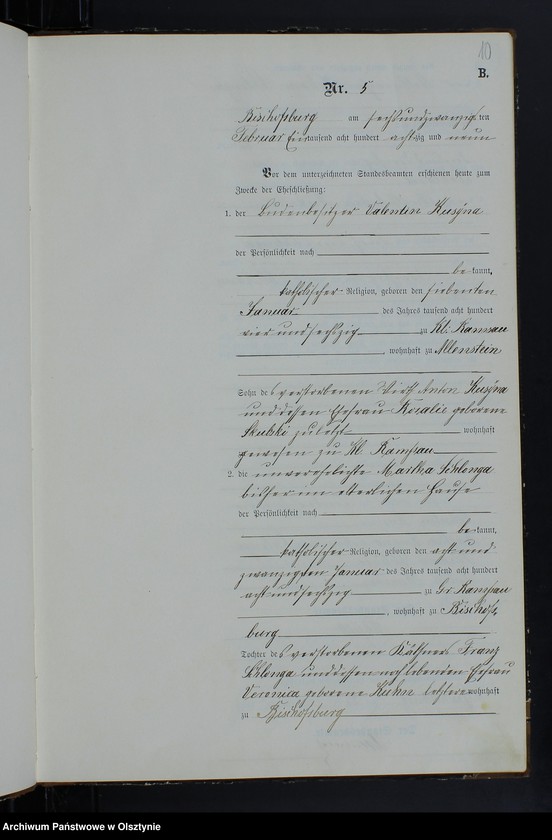 10
B.
Nr. 5
Bischofsburg am sechsundzwanzig ten
Februar Eintausend acht hundert achtzig und neun
Vor dem unterzeichneten Standesbeamten erschienen heute zum
Zwecke der Eheschließung:
1. der Budenbesitzer Valentin Kusÿna
der Persönlichkeit nach
be kannt,
katholischer Religion, geboren den siebenten
Januar des Jahres tausend acht hundert
vier und sechszig zu Kl. Ramsau
, wohnhaft zu Allenstein
Sohn des verstorbenen Wirth Anton Kusÿna
und dessen Ehefrau Rosalie geborene
Skubski zuletzt wohnhaft
gewesen zu Kl. Ramsau
2. die unverehelichte Martha Schlonga
bisher im elterlichen Hause
der Persönlichkeit nach
be kannt,
katholischer Religion, geboren den acht und
zwanzigsten Januar des Jahres tausend acht hundert
acht und sechszig zu Gr. Ramsau
, wohnhaft zu Bischofs
burg
Tochter des verstorbenen Käthners Franz
Schlonga und dessen noch lebenden Ehefrau
Veronica geborene Kuhn letztere wohnhaft
zu Bischofsburg
Archiwum Państwowe w Olsztynie